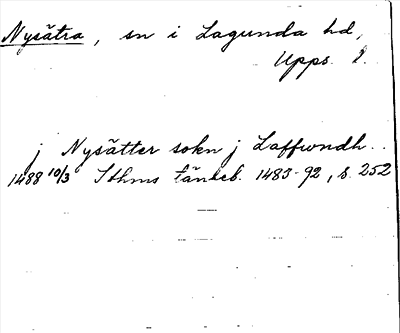 Nysätra, sn i Lagunda hd,
Upps. l.
j Nysätter sokn j Laffwndh..
1488 10/3 Sthms tänkeb. 1483-92, s. 252